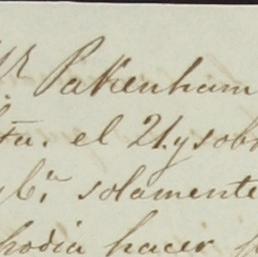 Sr Pakenham
el 21. y sob
solamente
podia hacer